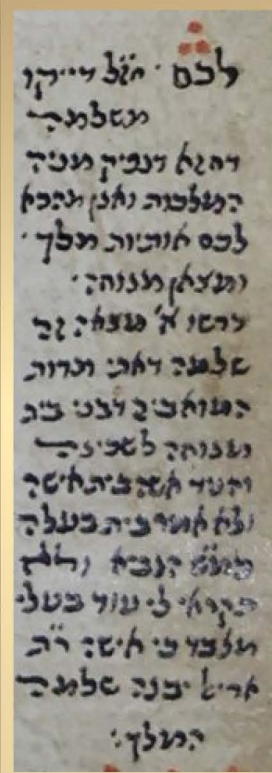 לכם · חז״ל דייקו
משלמה
דנפיק מניה
המלכות ואנן מהכא
לכם אותיות מלך ·
ומצאן מנוחה ·
דרשו א׳ מצאה זה
שלמה דאתי מרות
המואביה דבני בית
מנוחה לשכינה
ועוד אשה בית אישה
ולא אמר בית בעלה
כמ״ש הנביא ולא
תקראי לי עוד בעלי
מלבד כי אישה ר״ת
יבנה שלמה
המלך: